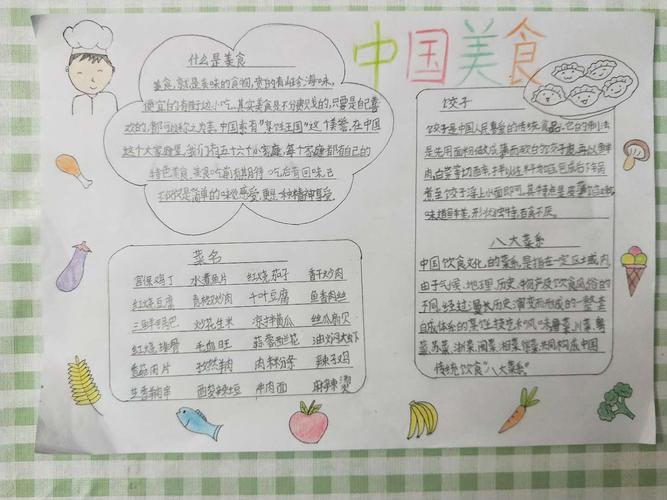 中国美食
什么是美食
美食,就是美味的食物,贵的有山珍海味,
便宜的有街边小吃。其实美食是不分贵贱的,只要是自己喜
欢的,都可以称之为美食。中国素有"烹饪王国"这个美誉,在中国
这个大家庭里,我们有五十六个小家庭,每个家庭都有自己的
特色美食。美食吃前有期待,吃后有回味,已
不仅仅是简单的味觉感受,更是一种精神享受。
饺子
饺子是中国人民喜爱的传统食品。它的制法
是先用面粉做成薄而软的饺子皮,再以鲜
肉、白菜等切碎,拌以佐料为馅,包后下锅
煮至饺子浮上水面即可。其特点是皮薄馅嫩,
味道鲜美,形状独特,百食不厌。
八大菜系
中国饮食文化的菜系,是指在一定区域内,
由于气候、地理、历史、物产及饮食风俗的
不同,经过漫长历史演变而形成的一整套
自成体系的烹饪技艺和风味。鲁菜、川菜、粤
菜、苏菜、浙菜、闽菜、湘菜、徽菜共同构成中国
传统饮食"八大菜系"
菜名
宫保鸡丁 水煮鱼片 红烧茄子 香干炒肉
红烧豆腐 青椒炒肉 千叶豆腐 鱼香肉丝
炒花生米 凉拌黄瓜 丝瓜扇贝
红烧排骨 毛血旺 蒜蓉西兰花 油焖大虾
孜然羊肉 肉末粉条 辣子鸡
牛肉面 麻辣烫